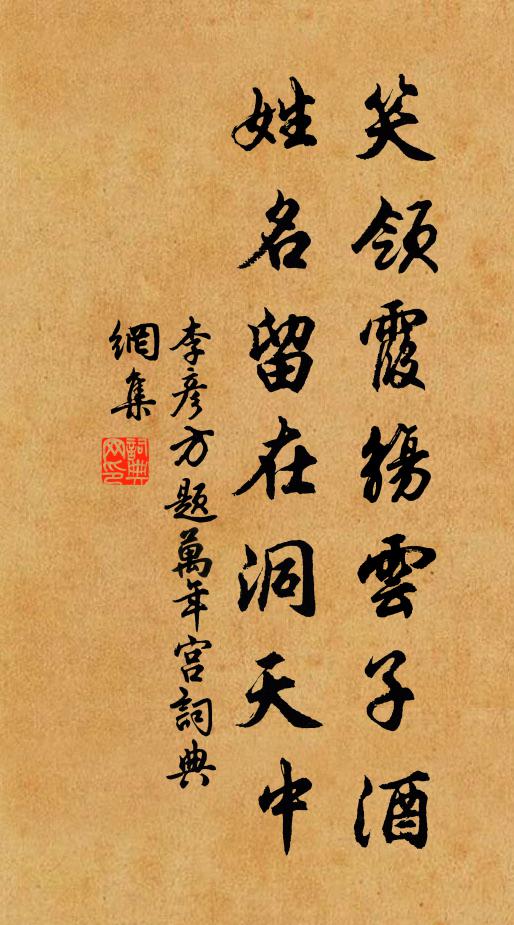 笑領霞觴雲子酒
姓名留在洞天中
李彥方題萬年宮詞典
網集
詞典
网印